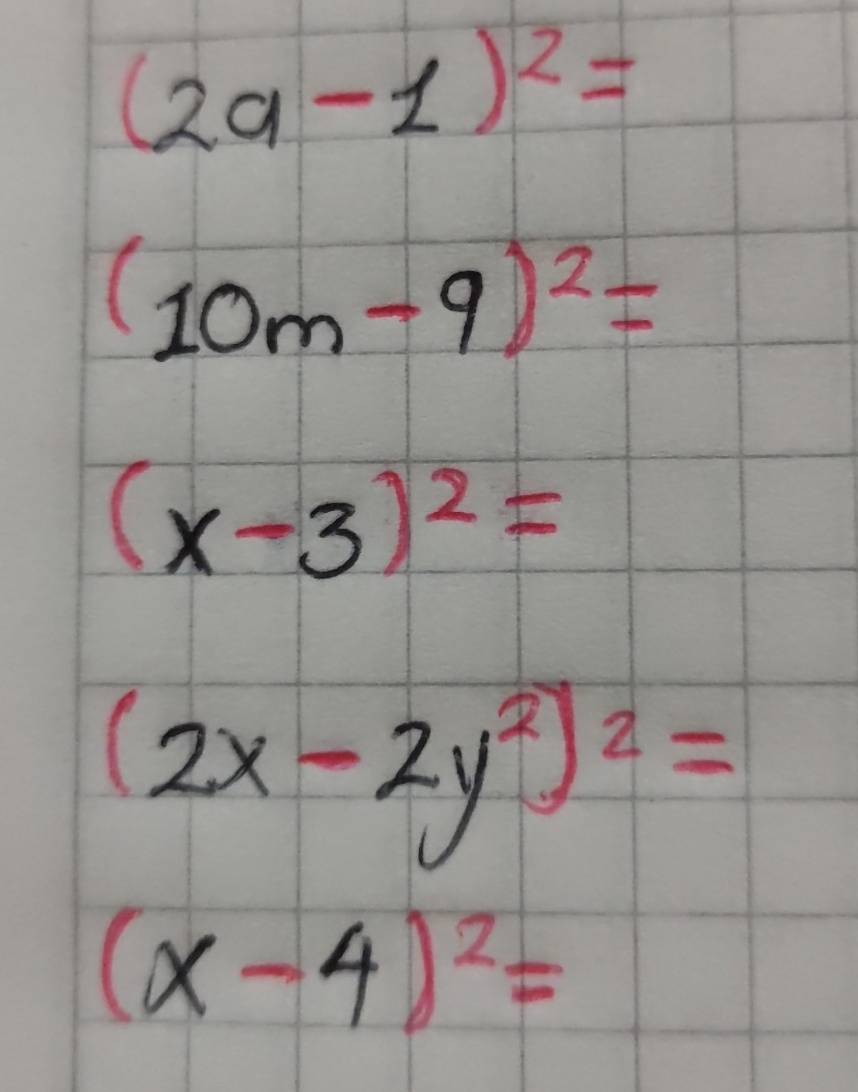 (2a - 1)² =
(10m - 9)² =
(x - 3)² =
(2x - 2y²)² =
(x - 4)² =